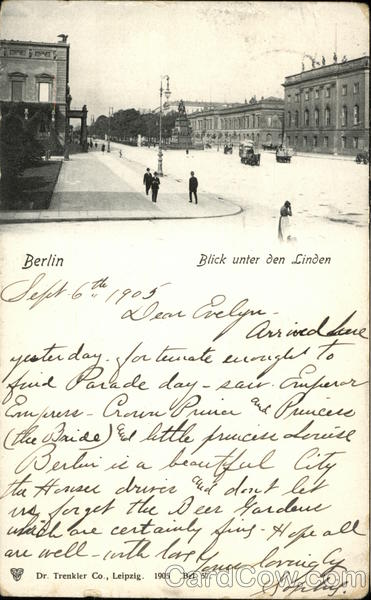 Berlin
Blick unter den Linden
Sept 6th 1905
Dear Evelyn-
Arrived here
yesterday. fortunate enought to
find Parade day - saw Emperor
Empress - Crown Prince and Princess
(the Bride) and little princess Louise
Berlin is a beautiful City
the Houses drives and dont let
us forget the Deer Gardens
which are certainly fine - Hope all
are well - with love
Yours lovingly
Dr. Trenkler Co., Leipzig. 1905 Brl. 57.
CardCow.com